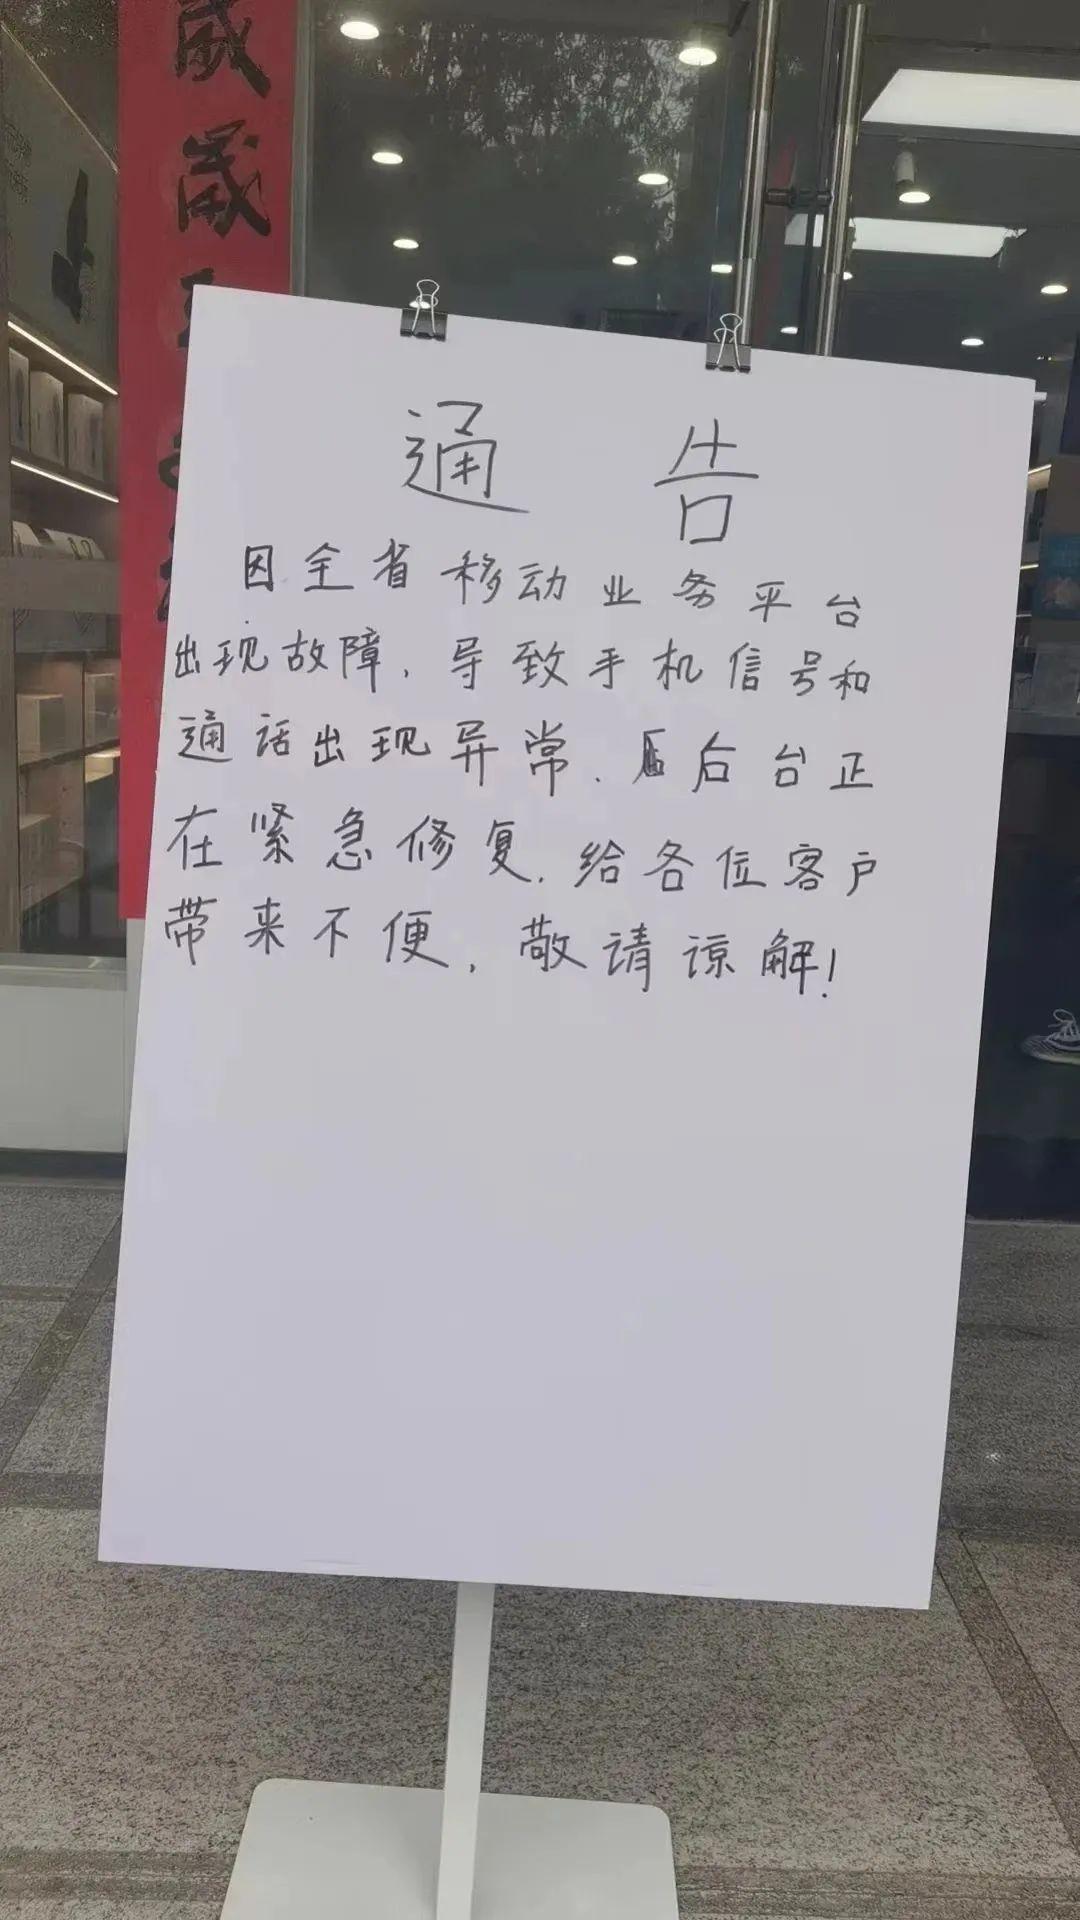 歲
歲
通 告
因全省移动业务平台
出现故障，导致手机信号和
通话出现异常、后台正
在紧急修复，给各位客户
带来不便，敬请谅解！